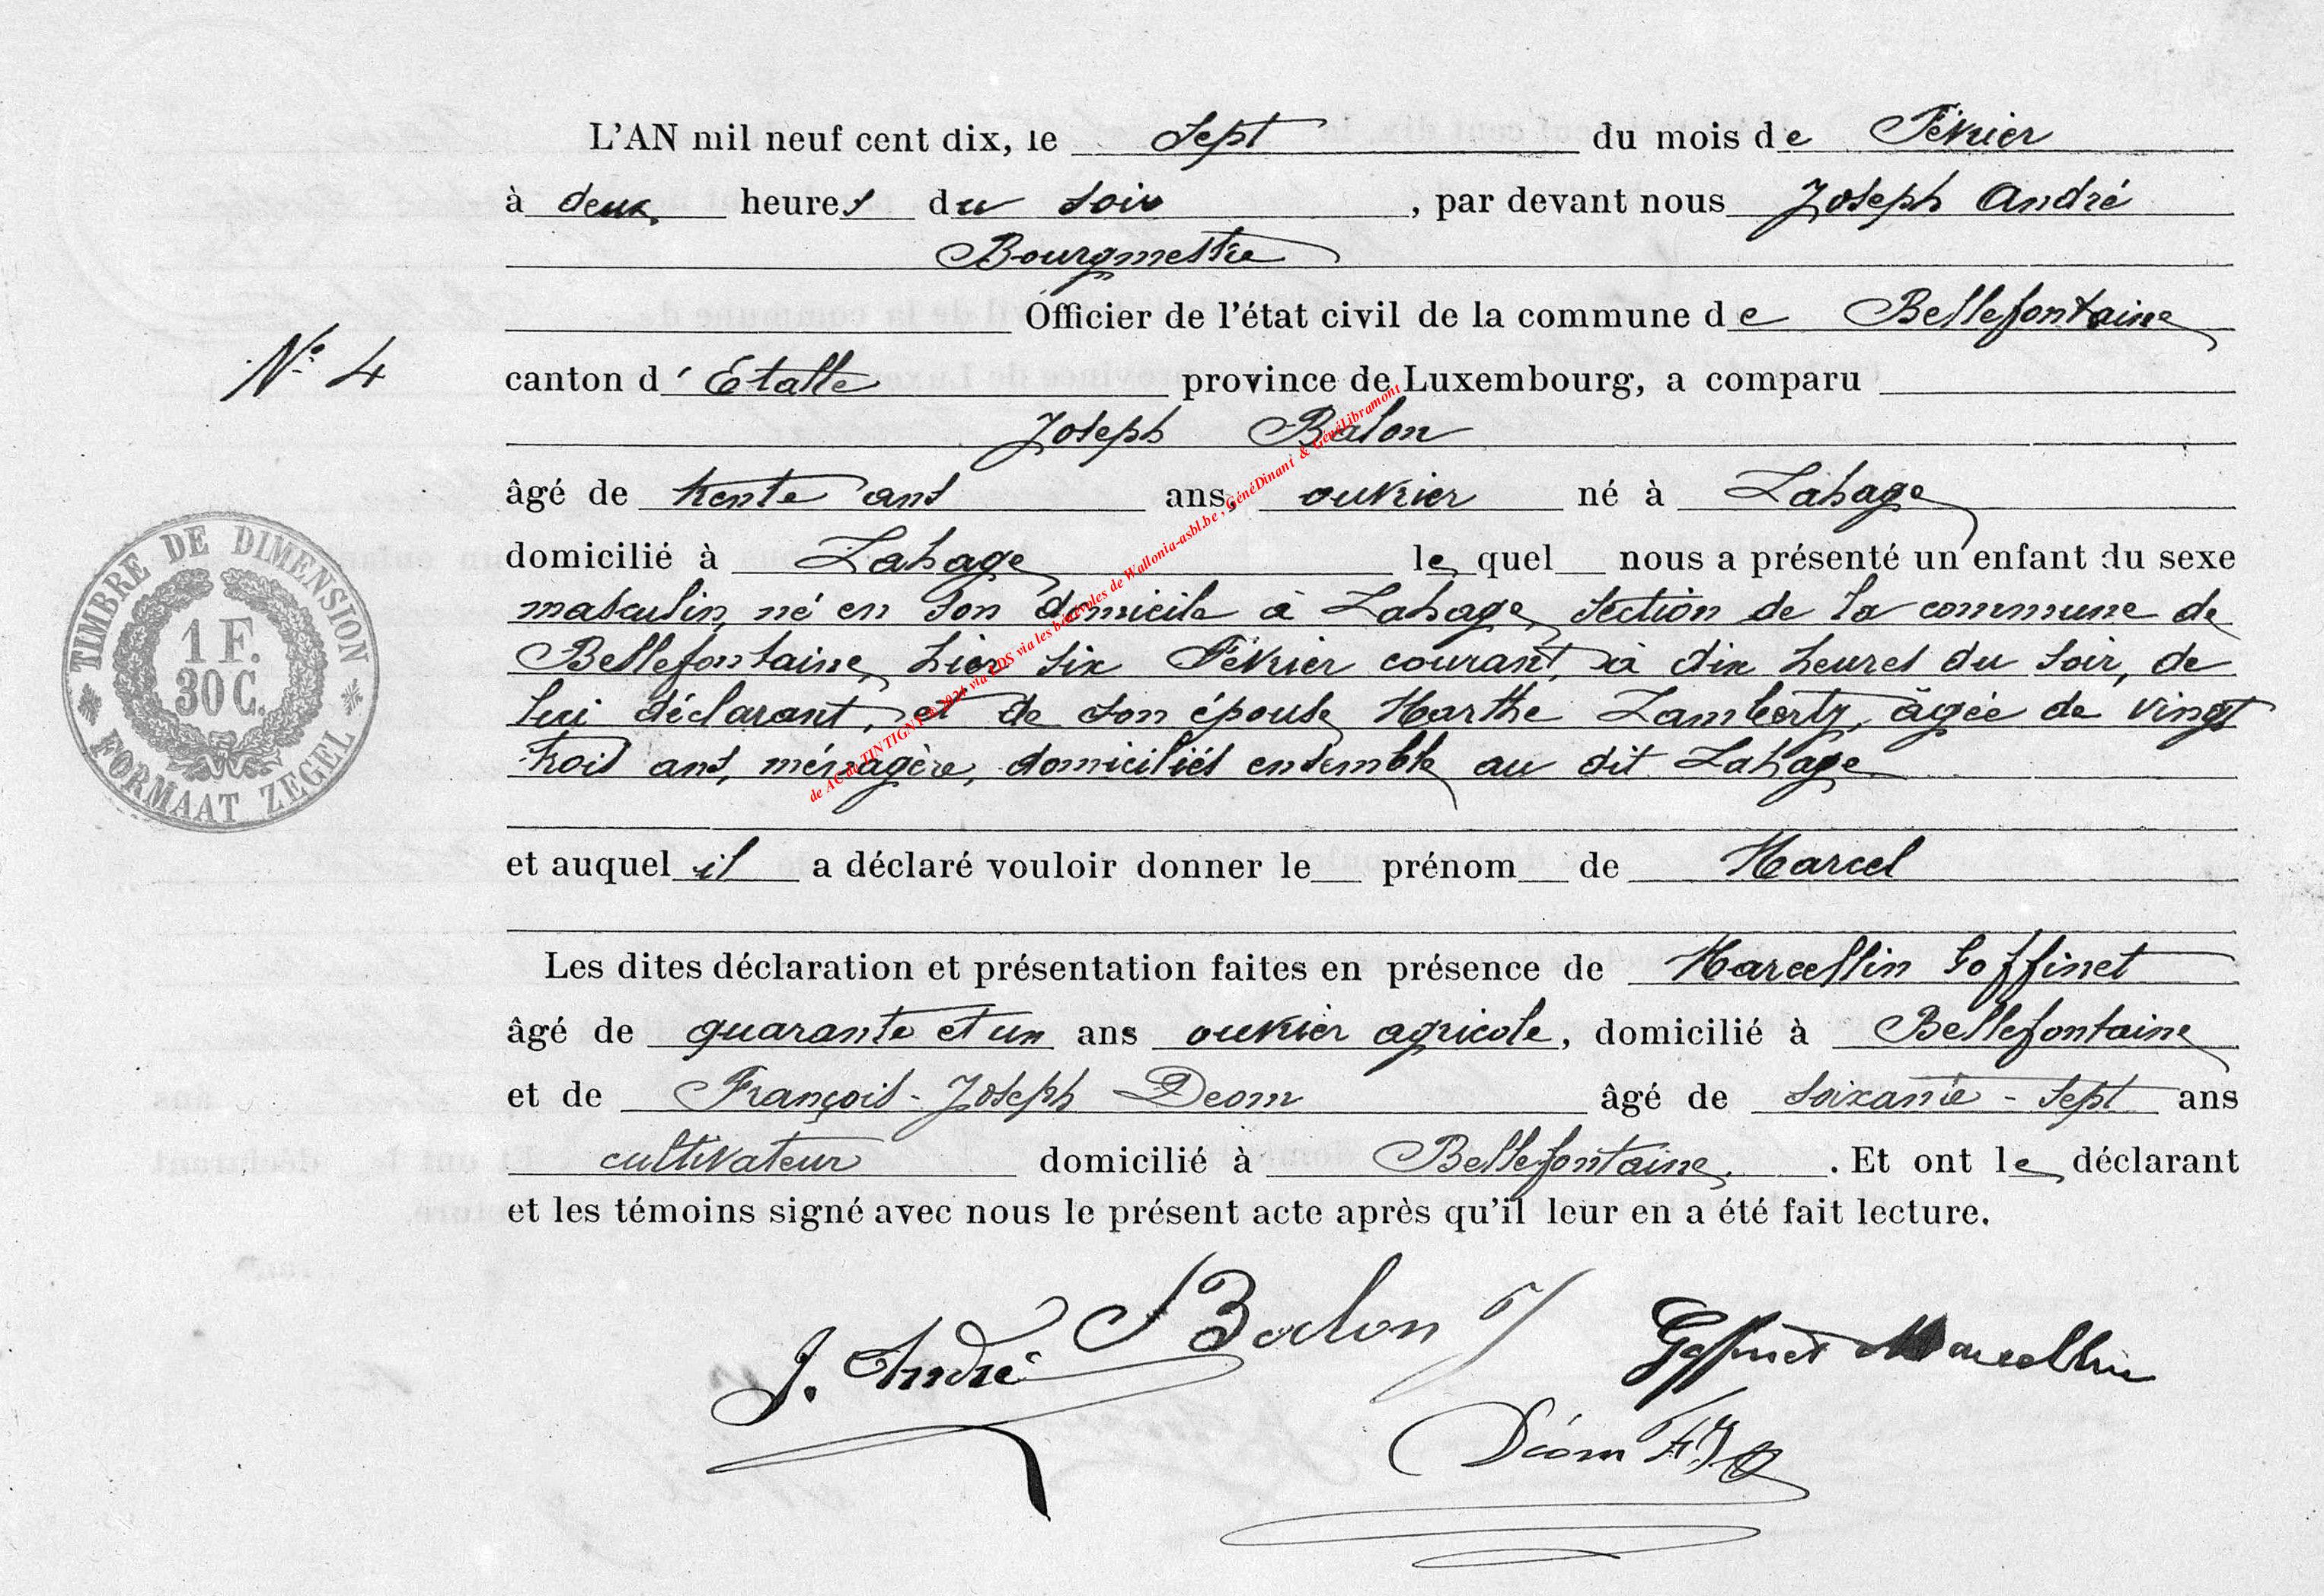 L'AN mil neuf cent dix, le Sept du mois de Février
à deux heures du soir, par devant nous Joseph André
Bourgmestre
Officier de l'état civil de la commune de Bellefontaine
N° 4
canton d'Etalle province de Luxembourg, a comparu
Joseph Balon
âgé de trente ans ans, ouvrier né à Lahage
domicilié à Lahage lequel nous a présenté un enfant du sexe
masculin, né en son domicile à Lahage, section de la commune de
Bellefontaine, hier six Février courant, à dix heures du soir, de
lui déclarant, et de son épouse Marthe Lambertz, âgée de vingt
trois ans, ménagère, domiciliés ensemble au dit Lahage
et auquel il a déclaré vouloir donner le prénom de Marcel
Les dites déclaration et présentation faites en présence de Marcellin Goffinet
âgé de quarante et un ans ouvrier agricole, domicilié à Bellefontaine
et de François-Joseph Deom âgé de soixante-sept ans
cultivateur domicilié à Bellefontaine. Et ont le déclarant
et les témoins signé avec nous le présent acte après qu'il leur en a été fait lecture.
TIMBRE DE DIMENSION
1 F.
30 C.
FORMAAT ZEGEL
de AC de TINTIGNY © 2024 via LDS via les bénévoles de Wallonia-asbl.be, GénéDinant & GénéLibramont
J. André Balon J Goffinet Marcellin
Déom FJ